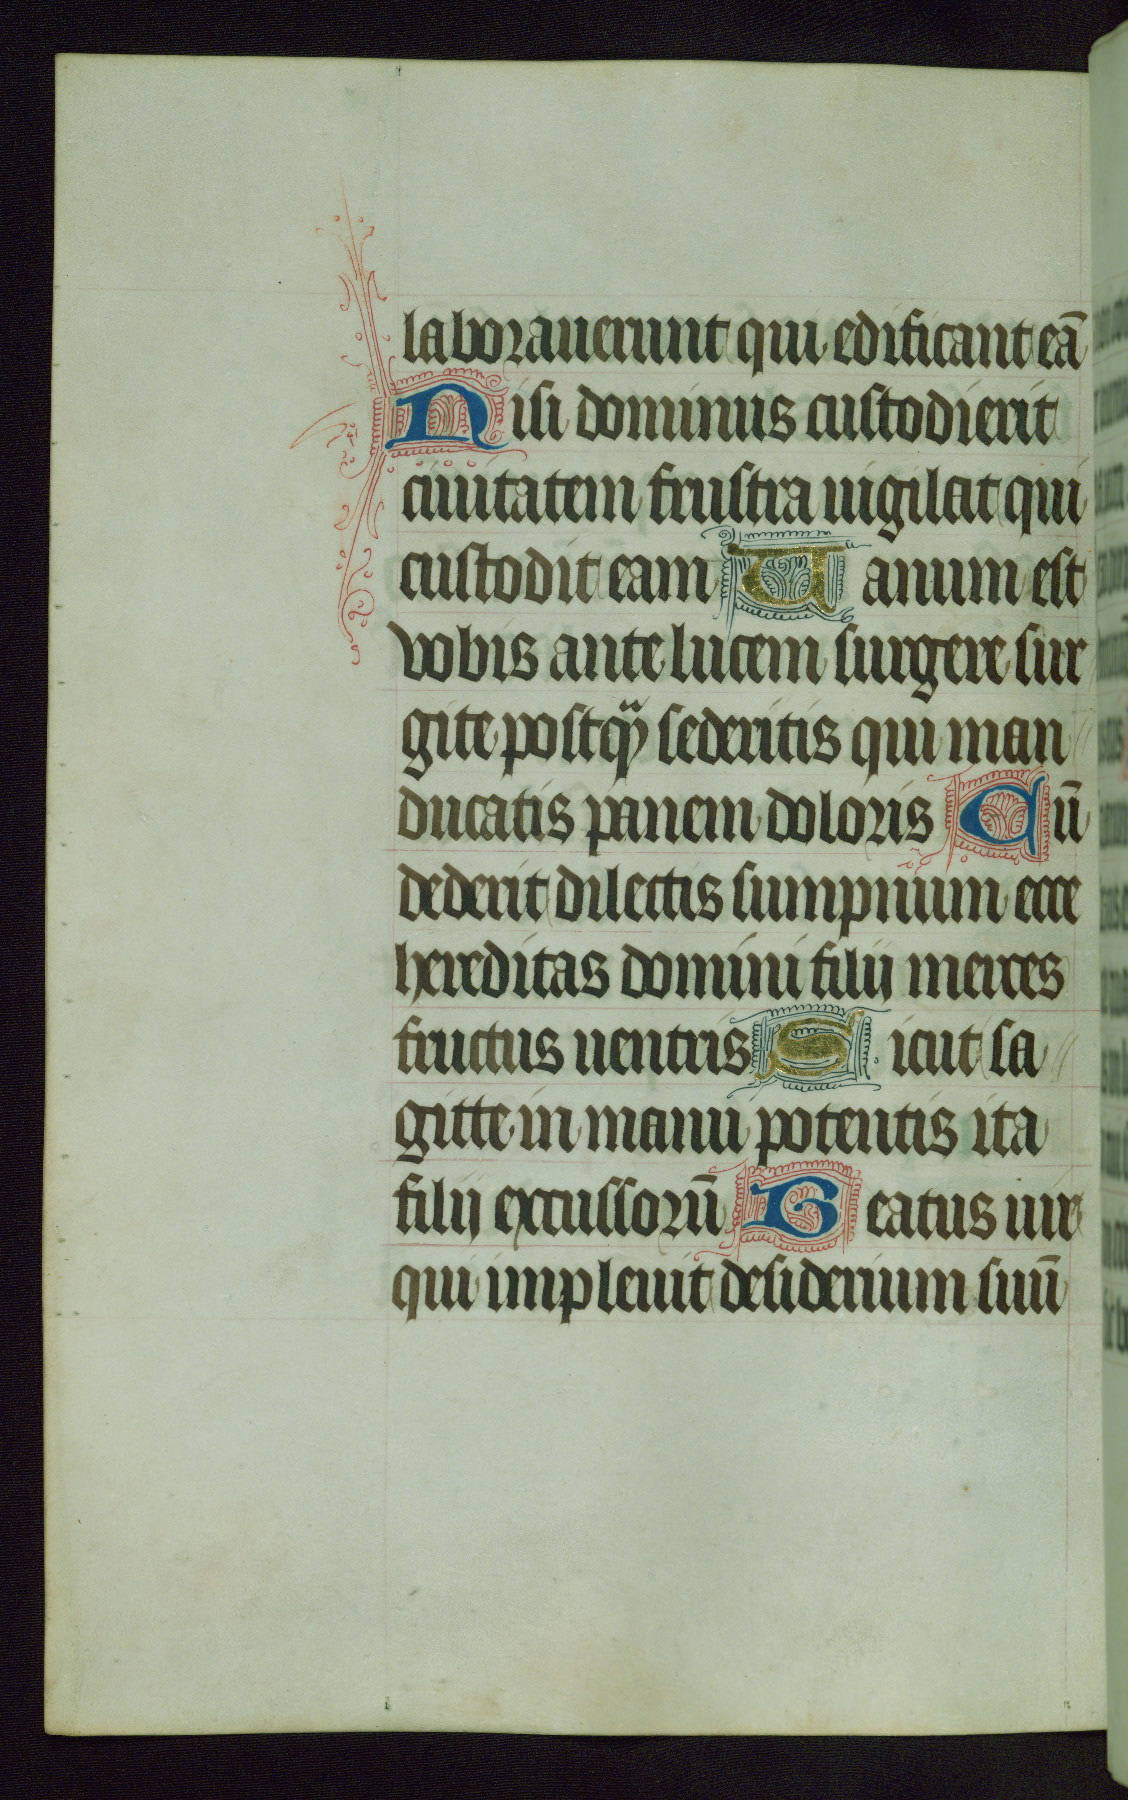 laborauerunt qui edificant eā
Nisi dominus custodierit
ciuitatem frustra uigilat qui
custodit eam Uanum est
vobis ante lucem surgere sur
gite postq̄ sederitis qui man
ducatis panem doloris Cū
dederit dilectis sumpnium ecce
hereditas domini filij merces
fructus uentris Sicut sa
gitte in manu potentis ita
filij excussorū Beatus uir
qui impleuit desiderium suū